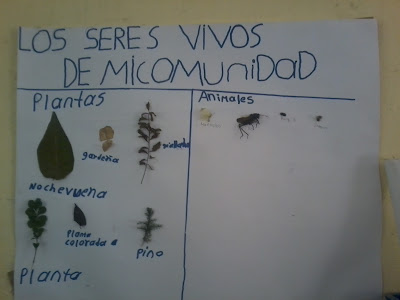 LOS SERES VIVOS
DE MICOMUNIDAD
Plantas
gardenia
Nochevuena
Plama
colorada
Pino
Planta
Animales